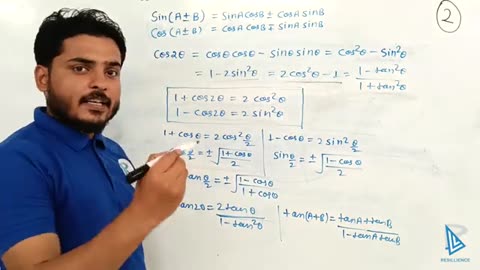 Sin(A±B) = SinA CosB ± CosA SinB
Cos(A±B) = CosA CosB ∓ SinA SinB
2
Cos2θ = Cosθ Cosθ - Sinθ Sinθ = Cos²θ - Sin²θ
= 1 - 2Sin²θ = 2Cos²θ - 1 = (1 - tan²θ)/(1 + tan²θ)
1 + Cos2θ = 2Cos²θ
1 - Cos2θ = 2Sin²θ
1 + Cosθ = 2Cos² θ/2
1 - Cosθ = 2Sin² θ/2
θ/2 = ±√((1 + Cosθ)/2)
Sin θ/2 = ±√((1 - Cosθ)/2)
an θ/2 = ±√((1 - Cosθ)/(1 + Cosθ))
an2θ = 2tanθ/(1 - tan²θ)
tan(A+B) = (tanA + tanB)/(1 - tanA tanB)
RESILIENCE